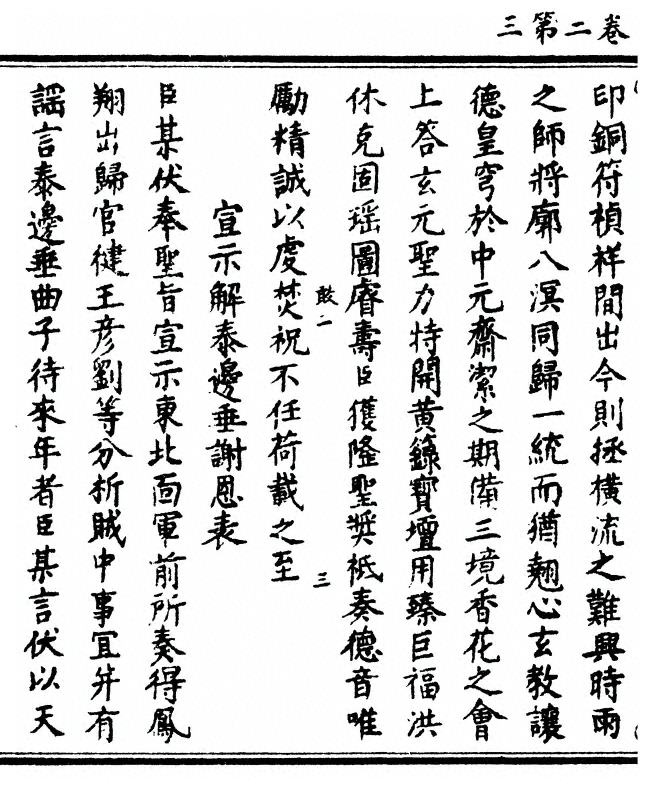 卷二第三
印銅符楨祥間出今則拯橫流之難興時雨
之師將廓八溟同歸一統而猶翹心玄教讓
德皇穹於中元齋潔之期備三境香花之會
上答玄元聖力特開黃籙寶壇用臻巨福洪
休克固瑶圖睿壽臣獲隆聖奬祗奏德音唯
敢二
三
勵精誠以虔焚祝不任荷載之至
宣示解泰邊垂謝恩表
臣某伏奉聖旨宣示東北面軍前所奏得鳳
翔出歸官健王彦劉等分析賊中事宜并有
謡言泰邊垂曲子待來年者臣某言伏以天